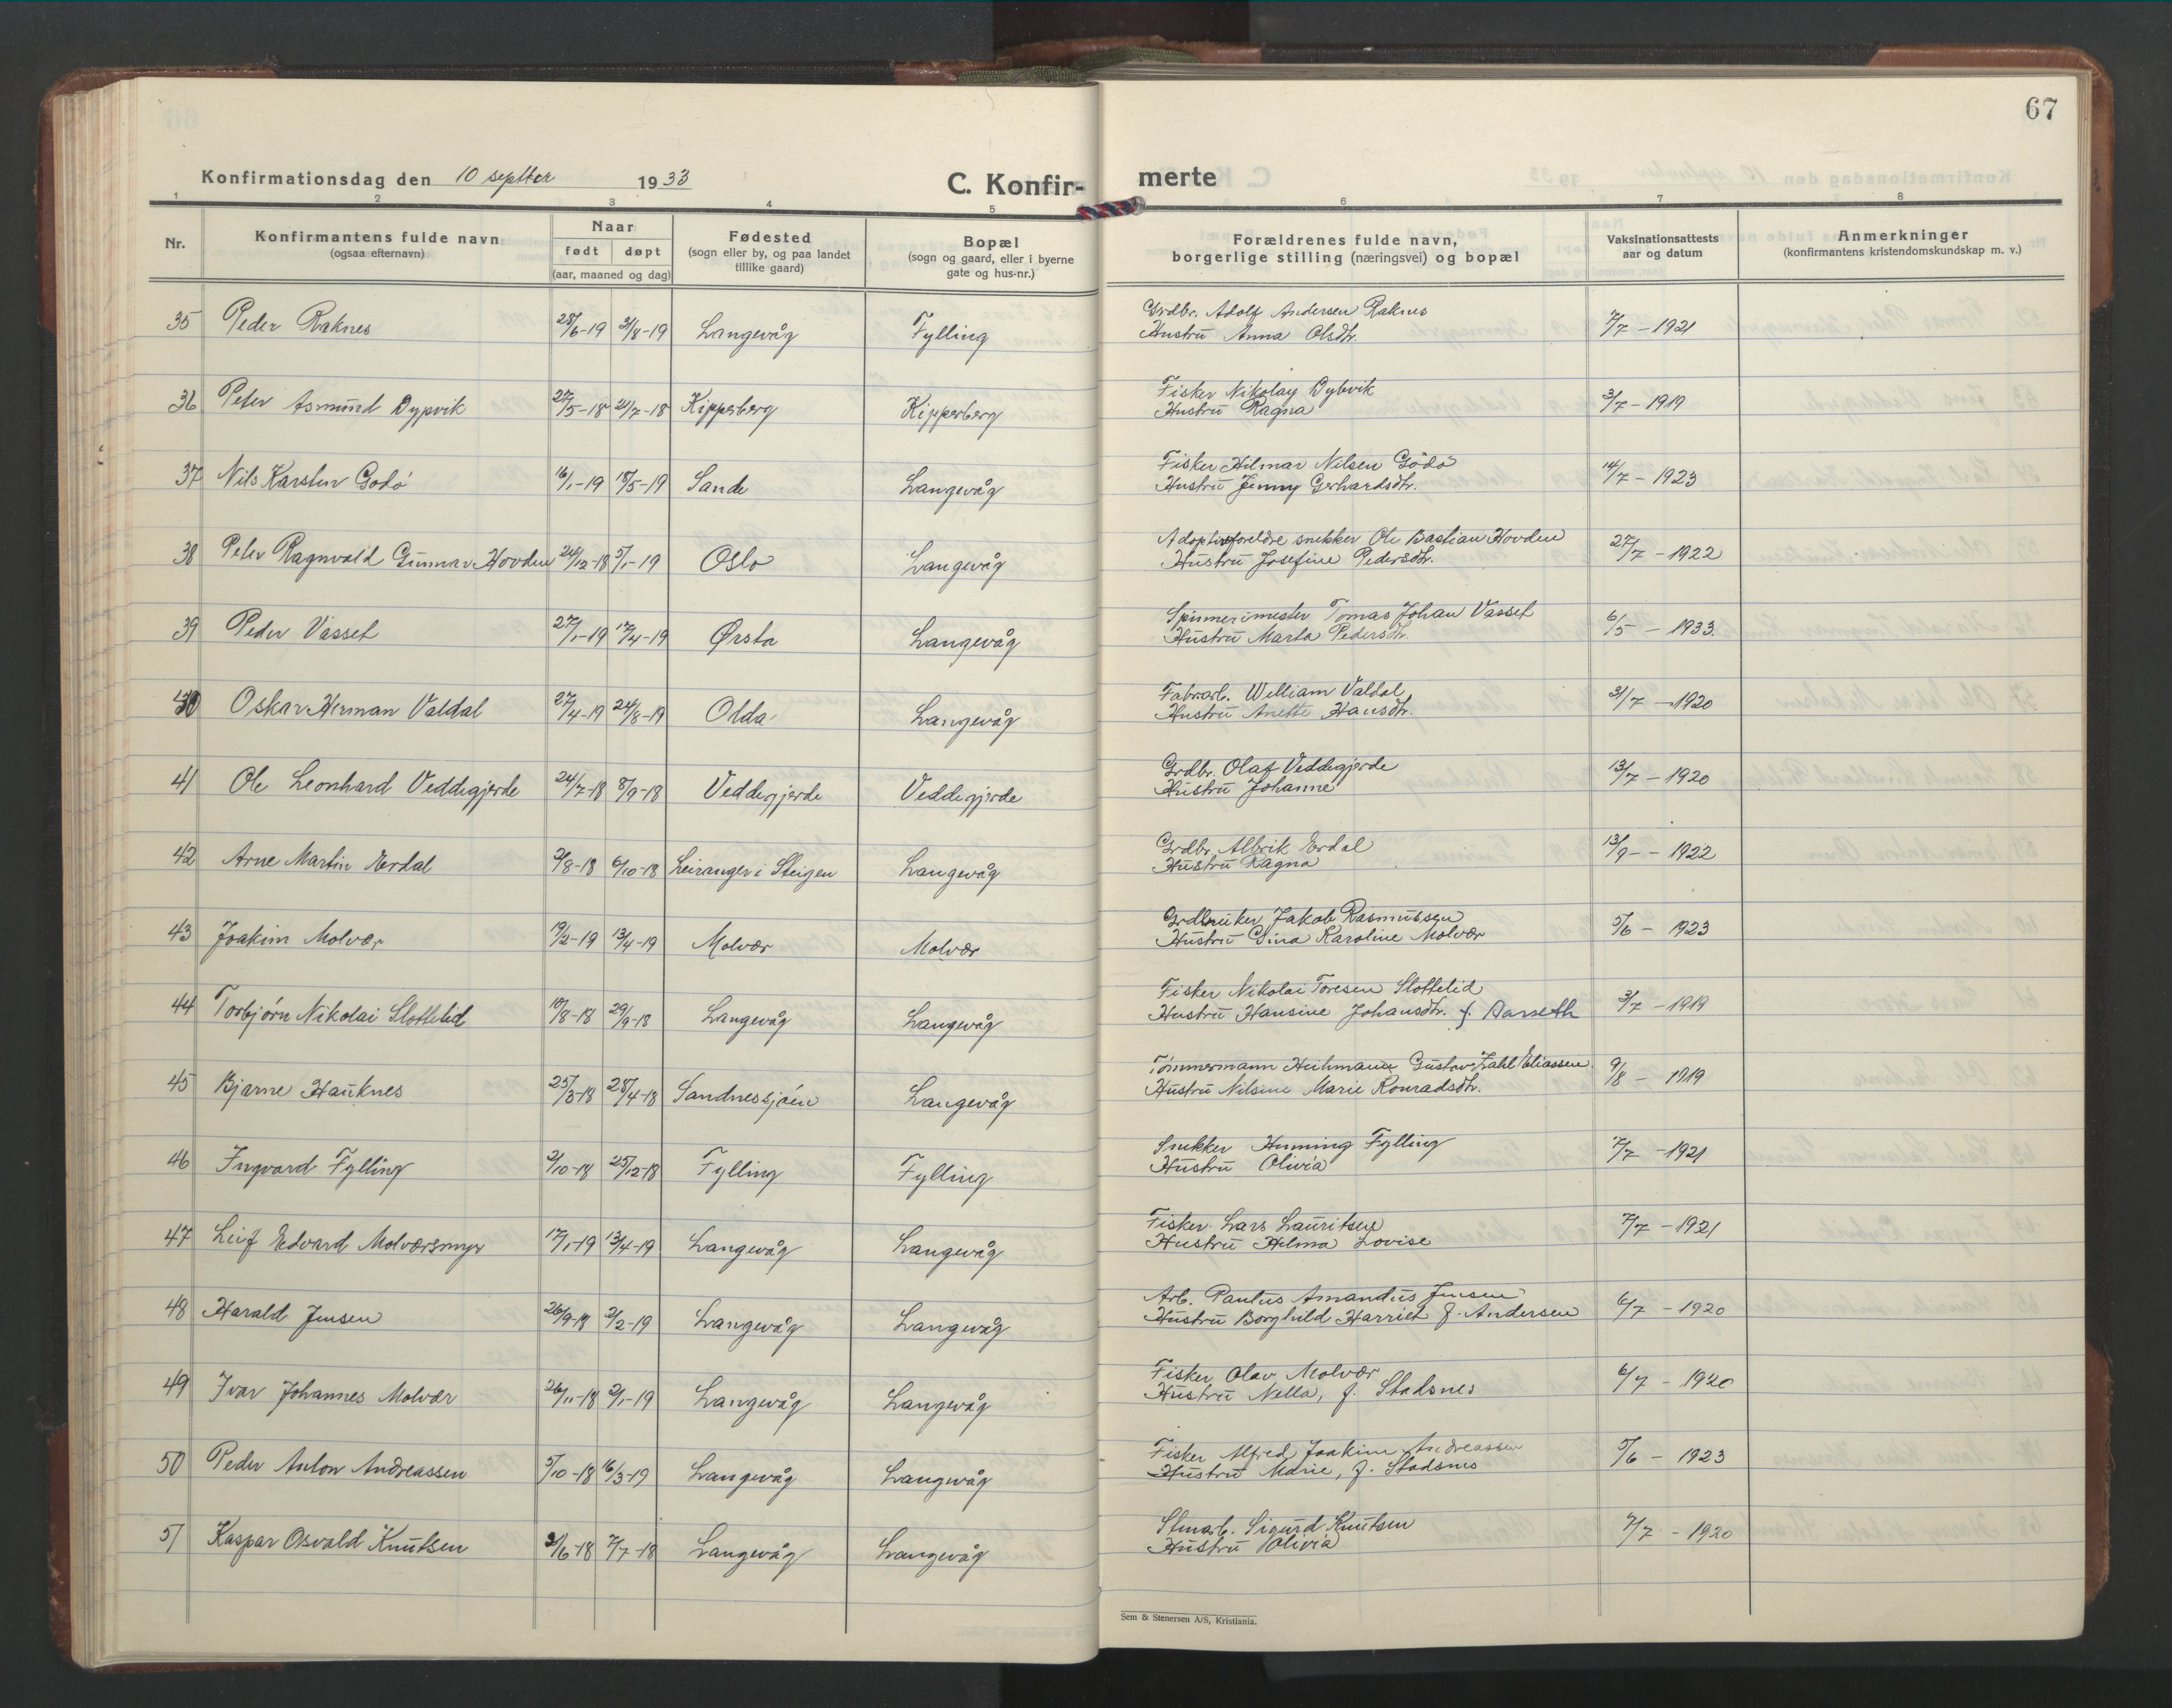 67
Konfirmationsdag den 10 septber 1933
C. Konfir- merte
1 2 3 4 5 6 7 8
Nr.
Konfirmantens fulde navn
(ogsaa efternavn)
Naar
født døpt
(aar, maaned og dag)
Fødested
(sogn eller by, og paa landet
tillike gaard)
Bopæl
(sogn og gaard, eller i byerne
gate og hus-nr.)
Forældrenes fulde navn,
borgerlige stilling (næringsvei) og bopæl
Vaksinationsattests
aar og datum
Anmerkninger
(konfirmantens kristendomskundskap m. v.)
35 Peder Raknes 28/6-19 31/8-19 Langevåg Fylling Grdbr. Adolf Andersen Raknes 7/7 - 1921
Hustru Anna Olsdtr.
36 Peter Asmund Dypvik 27/5-18 21/7-18 Kipperberg Kipperberg Fisker Nikolay Dybvik 3/7 - 1919
Hustru Ragna
37 Nils Karsten Godø 16/1-19 18/5-19 Sande Langevåg Fisker Hilmar Nilsen Godø 14/7 - 1923
Hustru Jenny Gerhardsdtr.
38 Peter Ragnvald Gunnar Hovden 24/12-18 5/1-19 Oslo Langevåg Adoptivforeldre snekker Ole Bastian Hovden 27/7 - 1922
Hustru Josefine Pedersdtr.
39 Peder Vasset 27/1-19 17/4-19 Ørsta Langevåg Spinnerimester Tomas Johan Vasset 6/5 - 1933.
Hustru Marta Pedersdtr.
40 Oskar Herman Valdal 27/4-19 24/8-19 Olda Langevåg Fabrarb. William Valdal 31/7 - 1920
Hustru Anette Hansdtr.
41 Ole Leonhard Veddegjerde 24/7-18 8/9-18 Veddegjerde Veddegjerde Grdbr. Olaf Veddegjerde 13/7 - 1920
Hustru Johanne
42 Arne Martin Erdal 2/8-18 6/10-18 Leiranger i Steigen Langevåg Grdbr. Albrik Erdal 13/9 - 1922
Hustru Ragna
43 Joakim Molvær 19/2-19 13/4-19 Molvær Molvær Grdbruker Jakob Rasmussen 5/6 - 1923
Hustru Gina Karoline Molvær
44 Torbjørn Nikolai Slottelid 10/8-18 29/9-18 Langevåg Langevåg Fisker Nikolai Toresen Slottelid 3/7 - 1919
Hustru Hansine Johansdtr. f. Aarseth
45 Bjarne Hauknes 25/3-18 28/4-18 Sandnessjøen Langevåg Tømmermann Gustav Zahl Eliassen 9/8 - 1919
Hustru Nilsine Marie Konradsdtr.
46 Ingvard Fylling 2/10-18 25/12-18 Fylling Fylling Snekker Henning Fylling 7/7 - 1921
Hustru Olivia
47 Leif Edvard Molværsmyr 17/1-19 13/4-19 Langevåg Langevåg Fisker Lars Lauritsen 7/7 - 1921
Hustru Hilma Lovise
48 Harald Jensen 26/9-18 2/2-19 Langevåg Langevåg Arb. Paulus Amandus Jensen 6/7 - 1920
Hustru Borghild Harriet f. Andersen
49 Ivar Johannes Molvær 26/11-18 2/1-19 Langevåg Langevåg Fisker Olav Molvær 6/7 - 1920
Hustru Nella, f. Stadsnes
50 Peder Anton Andreassen 5/10-18 16/3-19 Langevåg Langevåg Fisker Alfred Joakim Andreassen 5/6 - 1923
Hustru Marie, f. Stadsnes
51 Kaspar Osvald Knutsen 2/6-18 7/7-18 Langevåg Langevåg Stenarb. Sigurd Knutsen 7/7 - 1920
Hustru Olivia
Sem & Stenersen A/S, Kristiania.